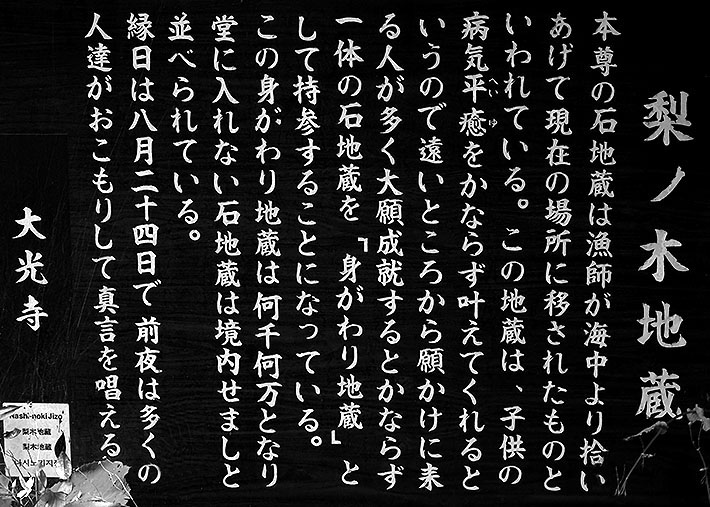 梨ノ木地蔵
本尊の石地蔵は漁師が海中より拾い
あげて現在の場所に移されたものと
いわれている。この地蔵は、子供の
病気平癒をかならず叶えてくれると
へいゆ
いうので遠いところから願かけに来
る人が多く大願成就するとかならず
一体の石地蔵を「身がわり地蔵」と
して持参することになっている。
この身がわり地蔵は何千何万となり
堂に入れない石地蔵は境内せましと
並べられている。
縁日は八月二十四日で前夜は多くの
人達がおこもりして真言を唱える
大光寺
Nashi-noki Jizo
梨木地蔵
梨木地蔵